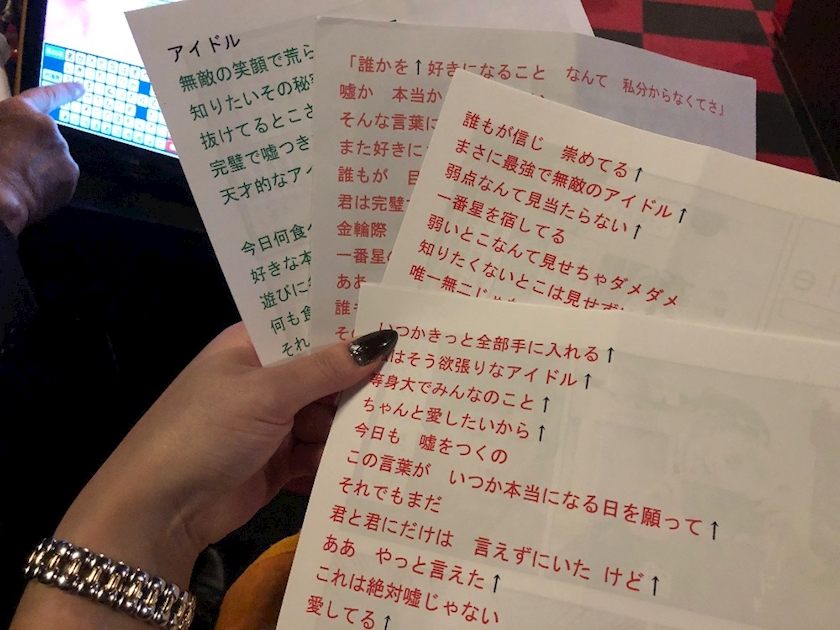 アイドル
無敵の笑顔で荒ら
知りたいその秘
抜けてるとこさ
完璧で嘘つき
天才的なアイ
今日何食べ
好きな本
遊びに
何も食
それ
「誰かを↑好きになること なんて 私分からなくてさ」
嘘か 本当か
そんな言葉に
また好きに
誰もが 目
君は完璧
金輪際
一番星の
ああ
誰
そ
誰もが信じ 崇めてる↑
まさに最強で無敵のアイドル↑
弱点なんて見当たらない↑
一番星を宿してる
弱いとこなんて見せちゃダメダメ
知りたくないとこは見せず
唯一無二じゃ
いつかきっと全部手に入れる↑
はそう欲張りなアイドル↑
等身大でみんなのこと↑
ちゃんと愛したいから↑
今日も 嘘をつくの
この言葉が いつか本当になる日を願って↑
それでもまだ
君と君にだけは 言えずにいた けど↑
ああ やっと言えた↑
これは絶対嘘じゃない
愛してる↑